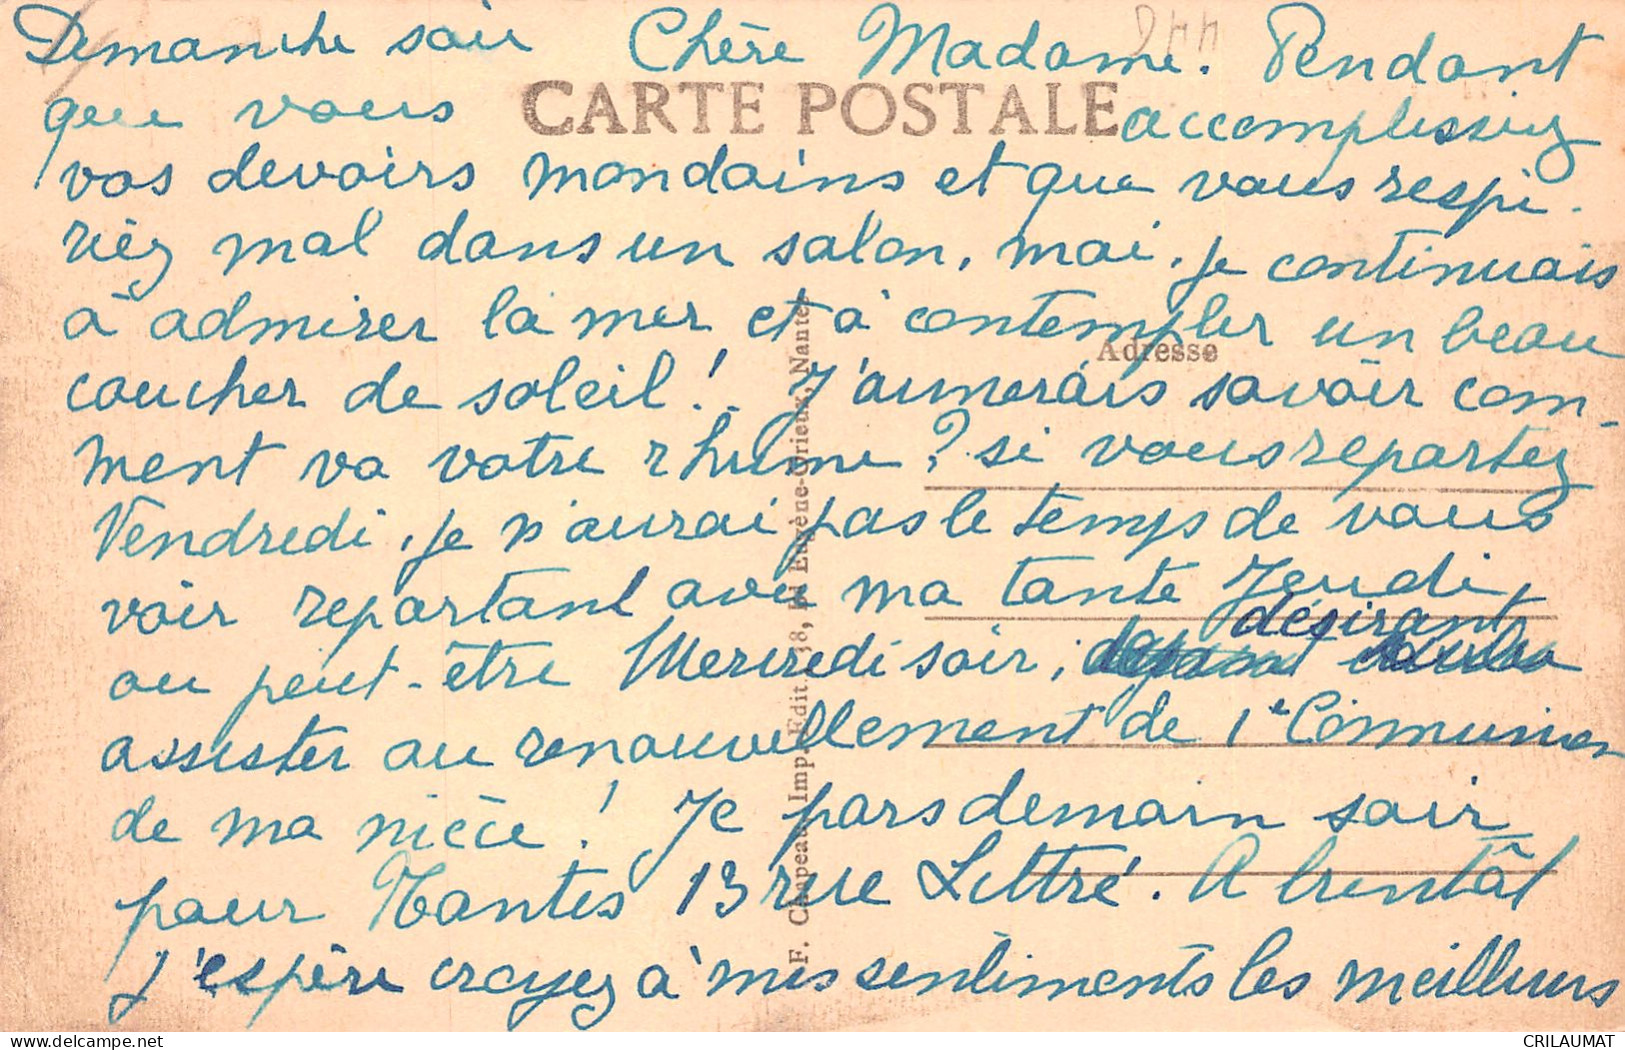 Demanche soir Chère Madame. Pendant
que vous accomplissiez
CARTE POSTALE
vos devoirs mondains et que vous respi-
riez mal dans un salon, moi, je continuais
à admirer la mer et à contempler un beau
Adresse
coucher de soleil! J'aimerais savoir com-
ment va votre rhume? si vous repartez
Vendredi, je n'aurai pas le temps de vous
voir repartant avec ma tante Jeudi,
ou peut-être Mercredi soir, désirant
assister au renouvellement de 1e Communion
de ma nièce! Je pars demain soir
pour Nantes 13 rue Littré. A bientôt
j'espère croyez à mes sentiments les meilleurs
F. Chapeau, Imp. Edit. 38, Bd Eugène-Orieux, Nantes
CRILAUMAT